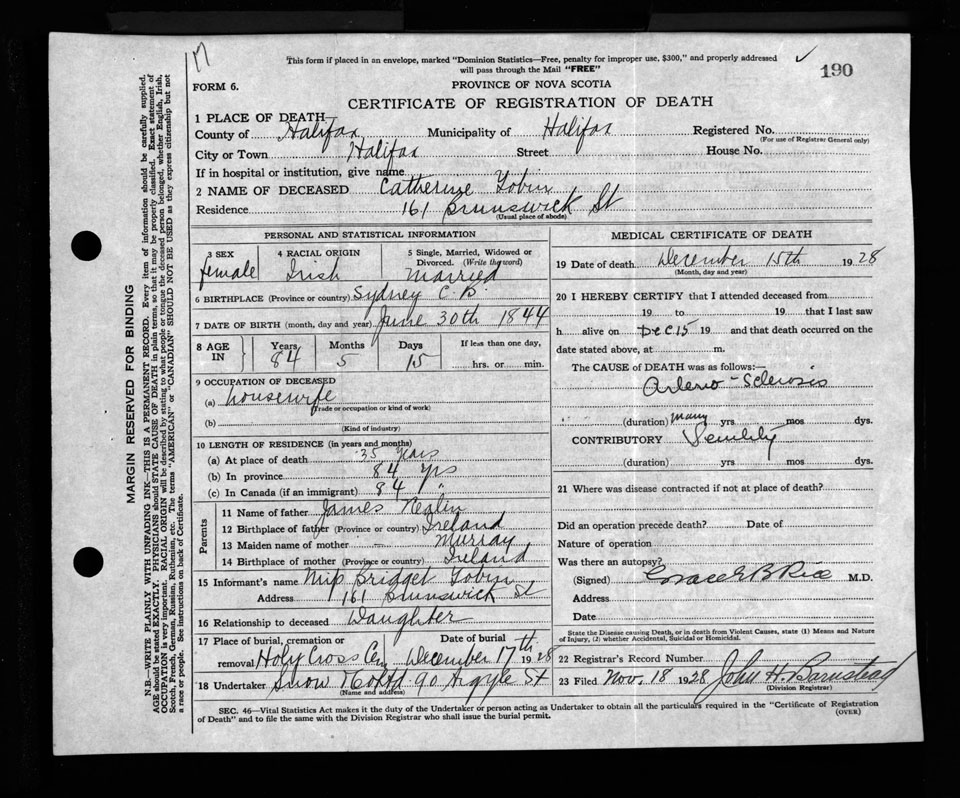 17
This form if placed in an envelope, marked "Dominion Statistics—Free, penalty for improper use, $300," and properly addressed
will pass through the Mail "FREE"
190
FORM 6.
PROVINCE OF NOVA SCOTIA
CERTIFICATE OF REGISTRATION OF DEATH
1 PLACE OF DEATH
County of Halifax Municipality of Halifax Registered No.
(For use of Registrar General only)
City or Town Halifax Street House No.
If in hospital or institution, give name
2 NAME OF DECEASED Catherine Tobin
Residence 161 Brunswick St
(Usual place of abode)
PERSONAL AND STATISTICAL INFORMATION
3 SEX 4 RACIAL ORIGIN 5 Single, Married, Widowed or
Divorced. (Write the word)
female Irish Married
6 BIRTHPLACE (Province or country) Sydney C. B.
7 DATE OF BIRTH (month, day and year) June 30th 1844
8 AGE IN Years Months Days If less than one day,
84 5 15 hrs. or min.
9 OCCUPATION OF DECEASED
(a) housewife
(Trade or occupation or kind of work)
(b)
(Kind of industry)
10 LENGTH OF RESIDENCE (in years and months)
(a) At place of death 35 years
(b) In province 84 yrs
(c) In Canada (if an immigrant) 84 "
Parents
11 Name of father James
12 Birthplace of father (Province or country) Ireland
13 Maiden name of mother — Murray
14 Birthplace of mother (Province or country) Ireland
15 Informant's name Miss Bridget Tobin
Address 161 Brunswick St
16 Relationship to deceased Daughter
17 Place of burial, cremation or Date of burial
removal Holy Cross Cem December 17th 1928
18 Undertaker Snow & Co Ltd 90 Argyle St
(Name and address)
MEDICAL CERTIFICATE OF DEATH
19 Date of death December 15th 1928
(Month, day and year)
20 I HEREBY CERTIFY that I attended deceased from
19 to 19 that I last saw
h alive on Dec 15 19 and that death occurred on the
date stated above, at m.
The CAUSE of DEATH was as follows:—
Arterio-Sclerosis
(duration) many yrs mos dys.
CONTRIBUTORY Senility
(duration) yrs mos dys.
21 Where was disease contracted if not at place of death?
Did an operation precede death? Date of
Nature of operation
Was there an autopsy?
(Signed) M.D.
Address
Date
State the Disease causing Death, or in death from Violent Causes, state (1) Means and Nature
of Injury, (2) whether Accidental, Suicidal or Homicidal.
22 Registrar's Record Number
23 Filed Nov. 18 1928 John H. Barnstead
(Division Registrar)
SEC. 46—Vital Statistics Act makes it the duty of the Undertaker or person acting as Undertaker to obtain all the particulars required in the "Certificate of Registration
of Death" and to file the same with the Division Registrar who shall issue the burial permit.
(OVER)
MARGIN RESERVED FOR BINDING
N.B.—WRITE PLAINLY WITH UNFADING INK—THIS IS A PERMANENT RECORD. Every item of information should be carefully supplied.
AGE should be stated EXACTLY. PHYSICIANS should STATE CAUSE OF DEATH in plain terms, so that it may be properly classified. Exact statement of
OCCUPATION is very important. RACIAL ORIGIN will be described by stating to what people or tongue the deceased person belonged, whether English, Irish,
Scotch, French, German, Russian, Ruthenian, etc. The terms "AMERICAN" or "CANADIAN" SHOULD NOT BE USED as they express citizenship but not
a race or people. See instructions on back of Certificate.